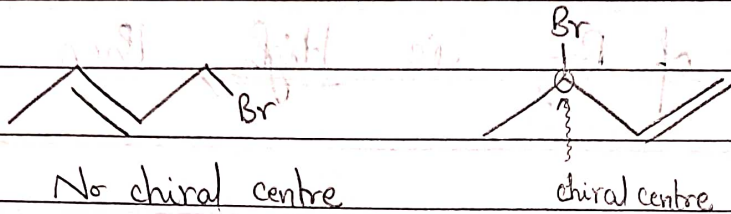 Br
Br
No chiral centre
chiral centre